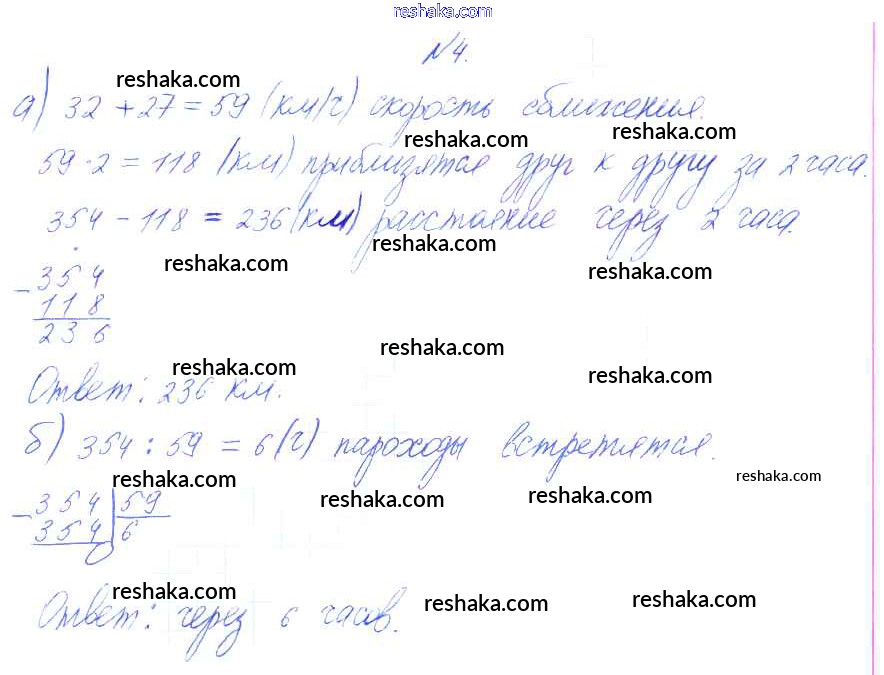 reshaka.com
№4.
reshaka.com
а) 32 + 27 = 59 (км/ч) скорость сближения.
reshaka.com reshaka.com
59 · 2 = 118 (км) приблизятся друг к другу за 2 часа.
354 - 118 = 236 (км) расстояние через 2 часа.
reshaka.com reshaka.com reshaka.com
- 354
118
236
reshaka.com
reshaka.com reshaka.com
Ответ: 236 км.
б) 354 : 59 = 6 (ч) пароходы встретятся.
reshaka.com reshaka.com reshaka.com reshaka.com
- 354 | 59
354 6
0
reshaka.com reshaka.com reshaka.com
Ответ: через 6 часов.